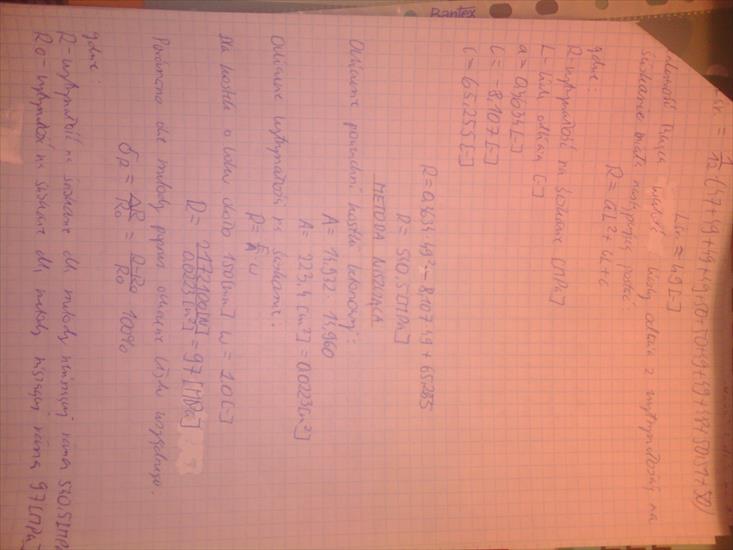 Bantex
= 1/12 · (47+49+49+49+50+50+49+49+49+50+51+50)
Lśr ≈ 49 [-]
zależność liczby odbicia z wytrzymałością na
ściskanie miała następującą postać
R = aL² + bL + c
gdzie:
R - wytrzymałość na ściskanie [MPa]
L - liczba odbicia [-]
a = 0,4634 [-]
c = -8,107 [-]
c = 65,255 [-]
R = 0,4634 · 49² - 8,107 · 49 + 65,255
R = 540,5 [MPa]
METODA NISZCZĄCA
Obliczenie powierzchni kostki betonowej:
A = 14,960
A = 223,4 [cm²] = 0,0223 [m²]
Obliczenie wytrzymałości na ściskanie:
R = F/A · ω
dla kostki o boku około 150 [mm] ω = 1,0 [-]
R = 2173100 [N] / 0,0223 [m²] = 97 [MPa]
Porównano obie metody poprzez obliczenie błędu względnego.
δR = ΔR/R₀ = R-R₀/R₀ · 100%
gdzie:
R - wytrzymałość na ściskanie dla metody nieniszczącej równa 540,5 [MPa]
R₀ - wytrzymałość na ściskanie dla metody niszczącej równa 97 [MPa]